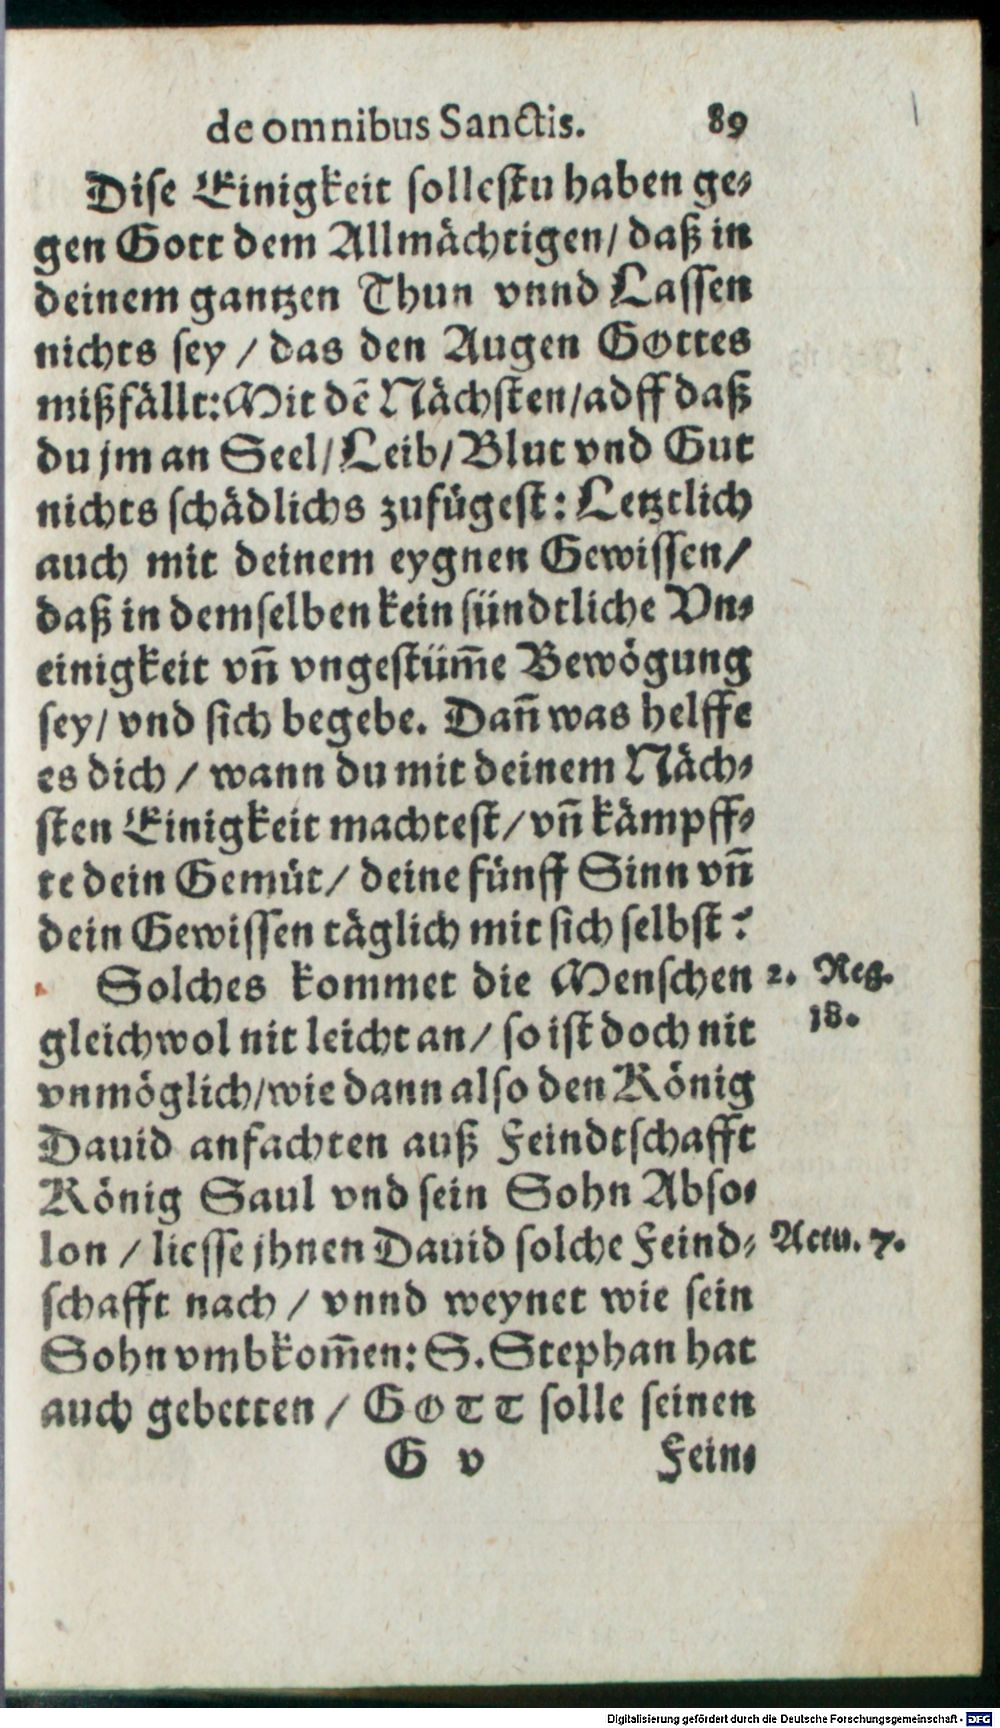 de omnibus Sanctis. 89
Dise Einigkeit sollestu haben ge⸗
gen Gott dem Allmächtigen/ daß in
deinem gantzen Thun vnnd Lassen
nichts sey / das den Augen Gottes
mißfällt: Mit dē Nächsten/adff daß
du jm an Seel/ Leib/ Blut vnd Gut
nichts schädlichs zufügest: Letztlich
auch mit deinem eygnen Gewissen/
daß in demselben kein sündtliche Vn⸗
einigkeit vn̄ vngestüm̄e Bewögung
sey/ vnd sich begebe. Dan̄ was helffe
es dich / wann du mit deinem Näch⸗
sten Einigkeit machtest/ vn̄ kämpff⸗
te dein Gemüt/ deine fünff Sinn vn̄
dein Gewissen täglich mit sich selbst?
Solches kommet die Menschen 2. Reg.
gleichwol nit leicht an/ so ist doch nit 18.
vnmöglich/wie dann also den König
Dauid anfachten auß Feindtschafft
König Saul vnd sein Sohn Abso⸗
lon / liesse jhnen Dauid solche Feind⸗ Actu. 7.
schafft nach / vnnd weynet wie sein
Sohn vmbkom̄en: S. Stephan hat
auch gebetten / GOTT solle seinen
G v Fein⸗
Digitalisierung gefördert durch die Deutsche Forschungsgemeinschaft - DFG